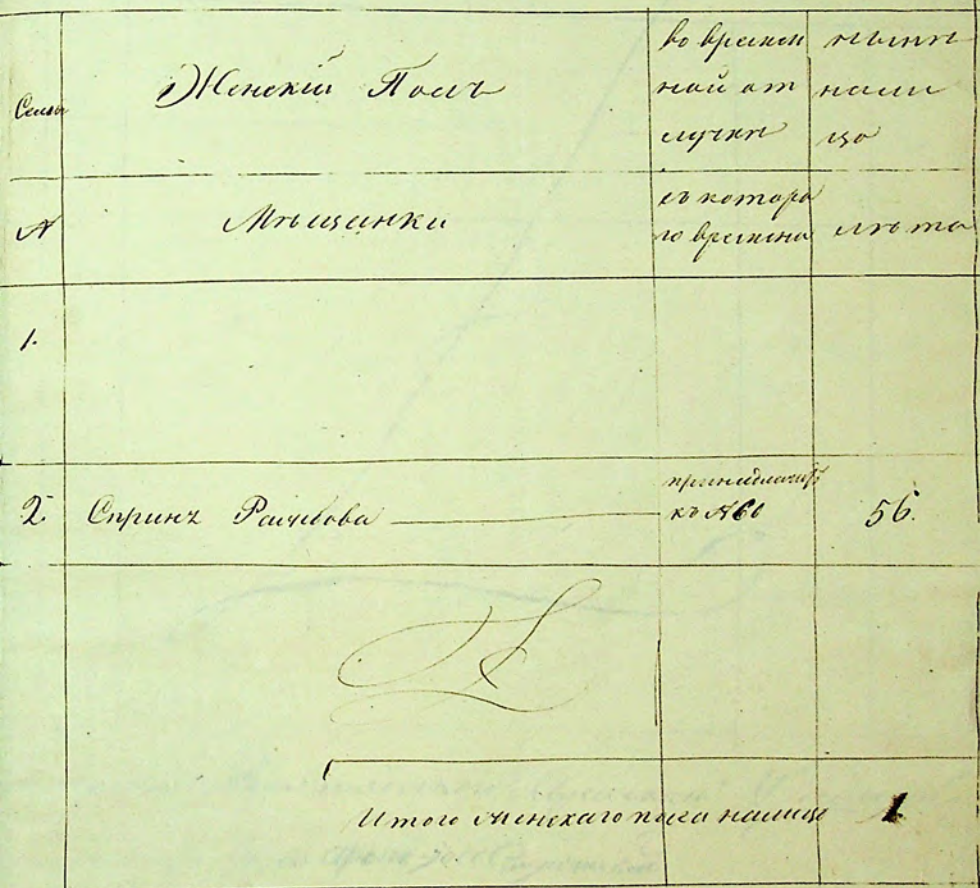 Семьи
Женскій Полъ
во времен
ной от
лучки
нынѣ
нали
цо
№
Мѣщанки
съ котора
го времени
лѣта
1.
2. Спринз ————— къ №60 56.
Итого женскаго пола налицо 1